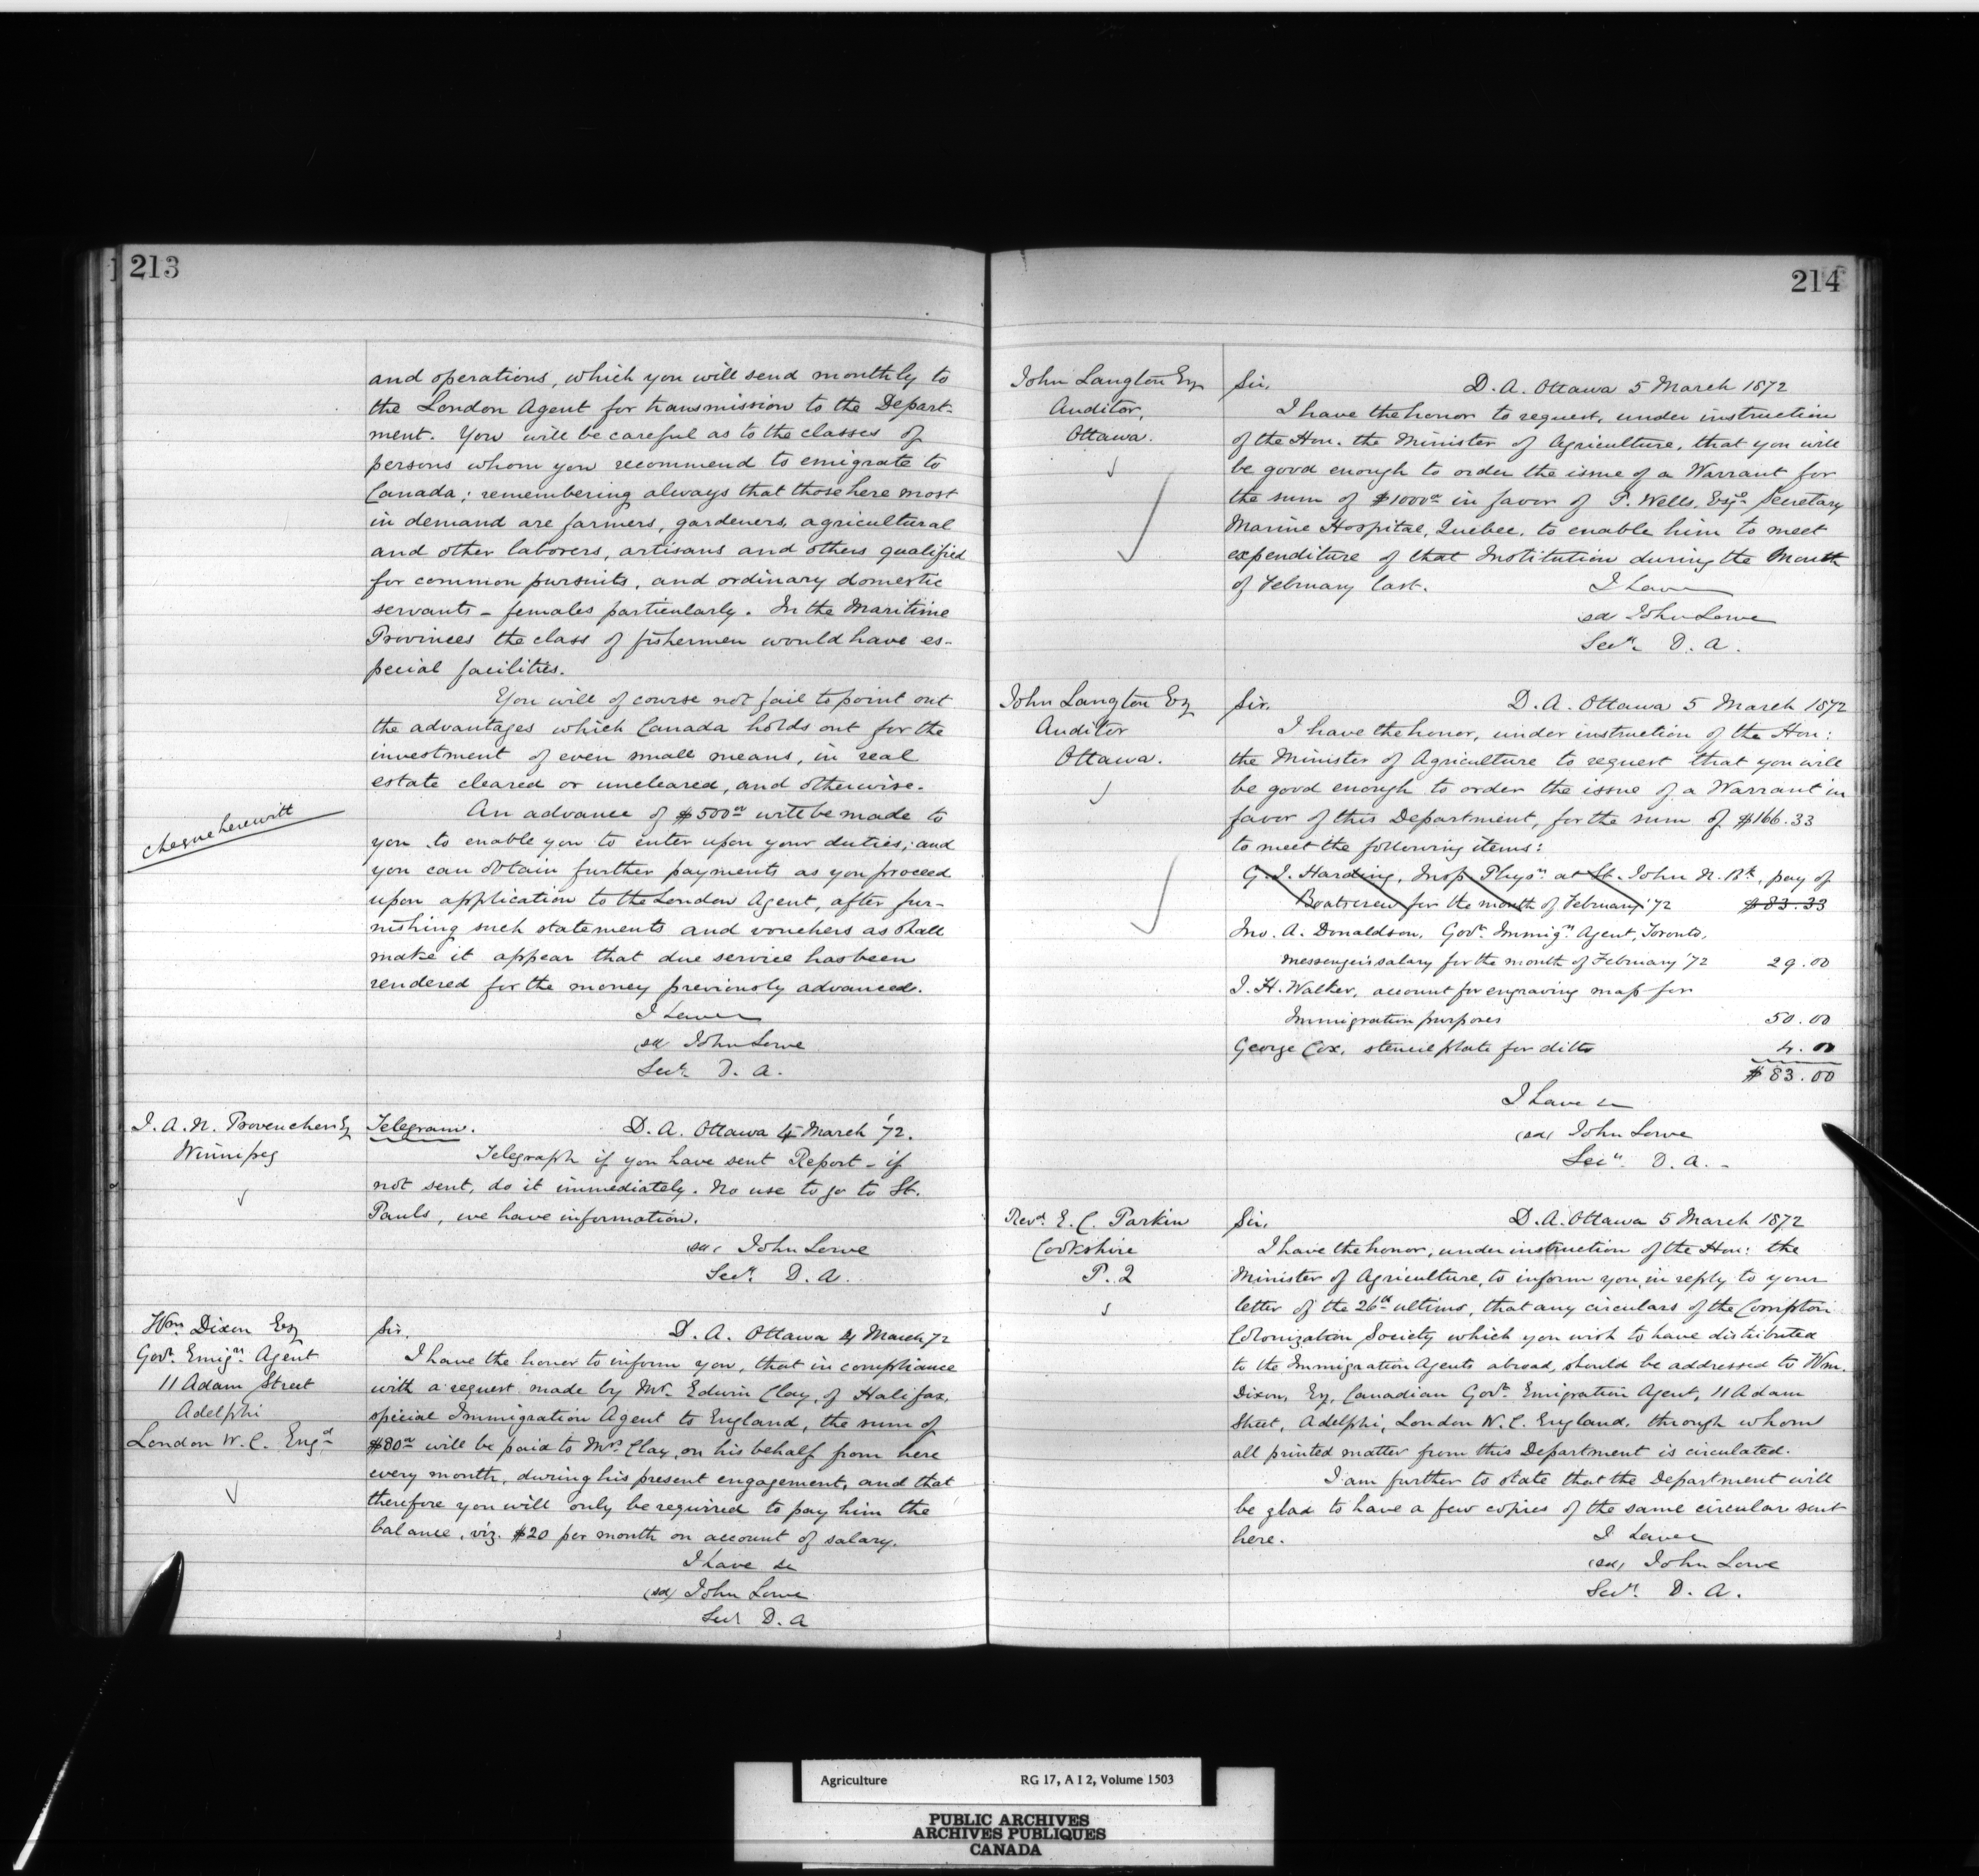 213
and operations, which you will send monthly to
the London Agent for transmission to the Depart-
ment. You will be careful as to the classes of
persons whom you recommend to emigrate to
Canada; remembering always that those here most
in demand are farmers, gardeners, agricultural
and other laborers, artisans and others qualified
for common pursuits, and ordinary domestic
servants - females particularly. In the Maritime
Provinces the class of fishermen would have es-
pecial facilities.
You will of course not fail to point out
the advantages which Canada holds out for the
investment of even small means, in real
estate cleared or uncleared, and otherwise.
cheque herewith
An advance of $500 00 will be made to
you to enable you to enter upon your duties; and
you can obtain further payments as you proceed
upon application to the London Agent, after fur-
nishing such statements and vouchers as shall
make it appear that due service has been
rendered for the money previously advanced.
I have
(sd) John Lowe
Secy. D. A.
J. A. N. Provencher Esq
Winnipeg
Telegram. D. A. Ottawa 4 March '72.
Telegraph if you have sent Report - if
not sent, do it immediately. No use to go to St.
Pauls, we have information.
(sd) John Lowe
Secy. D. A.
Wm. Dixon Esq
Govt. Emign. Agent
11 Adam Street
Adelphi
London W. C. Engd
Sir, D. A. Ottawa 4 March 72
I have the honor to inform you, that in compliance
with a request made by Mr. Edwin Clay, of Halifax,
special Immigration Agent to England, the sum of
$80 00 will be paid to Mrs. Clay, on his behalf from here
every month, during his present engagement, and that
therefore you will only be required to pay him the
balance, viz. $20 per month on account of salary.
I have &c
(sd) John Lowe
Secy D. A
214
John Langton Esq
Auditor,
Ottawa.
Sir, D. A. Ottawa 5 March 1872
I have the honor to request, under instruction
of the Hon. the Minister of Agriculture, that you will
be good enough to order the issue of a Warrant for
the sum of $1000 00 in favor of P. Wells, Esqe. Secretary
Marine Hospital, Quebec, to enable him to meet
expenditure of that Institution during the Month
of February last. I have
sd John Lowe
Secy. D. A.
John Langton Esq
Auditor
Ottawa.
Sir. D. A. Ottawa 5 March 1872
I have the honor, under instruction of the Hon:
the Minister of Agriculture to request that you will
be good enough to order the issue of a Warrant in
favor of this Department, for the sum of $166.33
to meet the following items:
G. J. Harding, Insp. Physn. at St. John N. Bk, pay of
Boatcrew for the month of February '72 $83.33
Jno. A. Donaldson, Govt. Immign. Agent, Toronto,
messenger's salary for the month of February '72 29.00
J. H. Walker, account for engraving map for
Immigration purposes 50.00
George Cox, stencil plate for ditto 4.00
$83.00
I have &c
(sd) John Lowe
Secy. D. A.-
Revd. E. C. Parkin
Cookshire
P. Q
Sir, D. A. Ottawa 5 March 1872
I have the honor, under instruction of the Hon: the
Minister of Agriculture, to inform you, in reply to your
letter of the 26th ultimo, that any circulars of the Compton
Colonization Society which you wish to have distributed
to the Immigration Agents abroad, should be addressed to Wm.
Dixon, Esq, Canadian Govt. Emigration Agent, 11 Adam
Street, Adelphi, London W. C. England, through whom
all printed matter from this Department is circulated.
I am further to state that the Department will
be glad to have a few copies of the same circular sent
here. I have
(sd) John Lowe
Secy. D. A.
Agriculture RG 17, A I 2, Volume 1503
PUBLIC ARCHIVES
ARCHIVES PUBLIQUES
CANADA